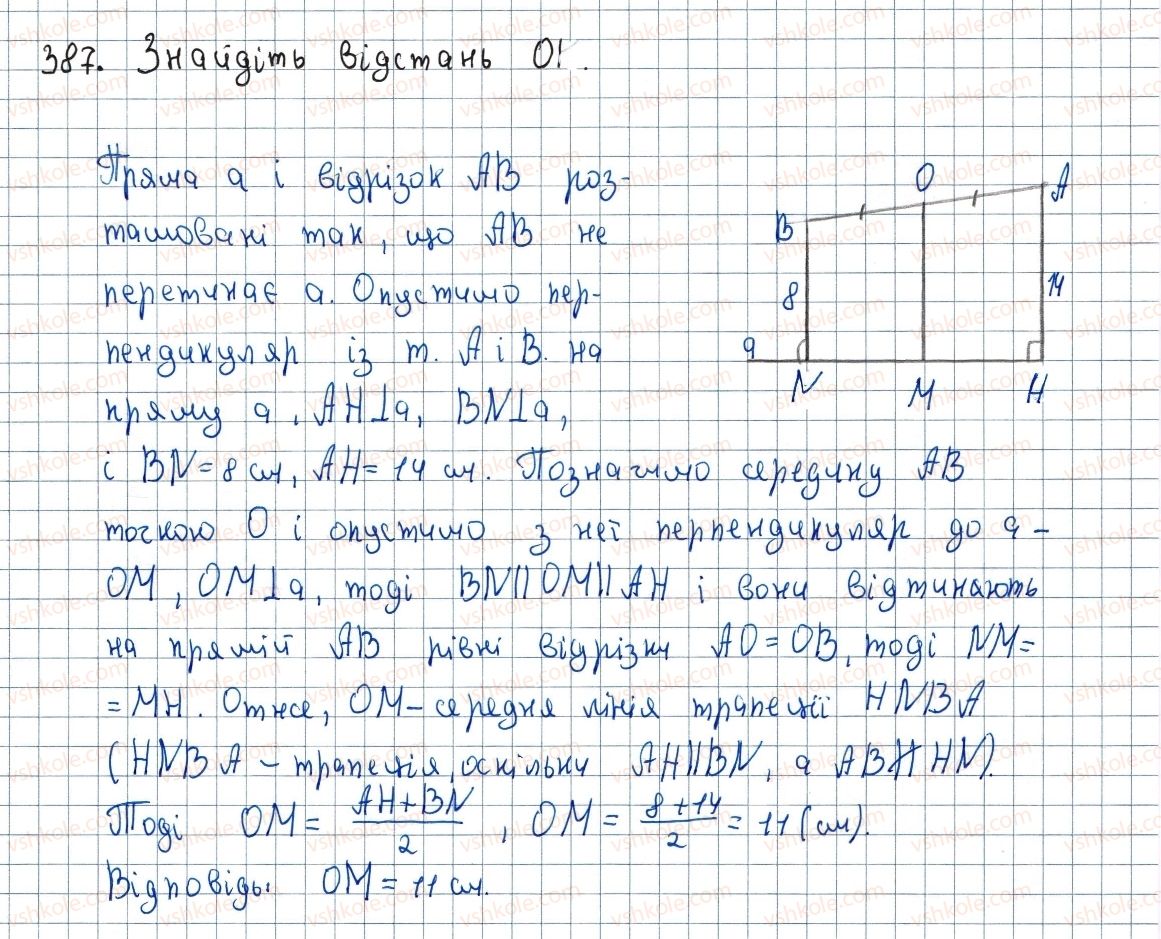 387. Знайдіть відстань O!.
Пряма a і відрізок AB роз-
ташовані так, що AB не
перетинає a. Опустимо пер-
пендикуляр із т. A і B. на
пряму a, AH⊥a, BN⊥a,
і BN = 8 см, AH = 14 см. Позначимо середину AB
точкою O і опустимо з неї перпендикуляр до a –
OM, OM⊥a, тоді BN||OM||AH і вони відтинають
на прямій AB рівні відрізки AO = OB, тоді NM =
= MH. Отже, OM – середня лінія трапеції HNBA
(HNBA – трапеція, оскільки AH||BN, а AB∦HN).
Тоді OM = (AH+BN)/2, OM = (8+14)/2 = 11 (см).
Відповідь: OM = 11 см.
O
A
B
8
14
a
N
M
H
vshkole.com